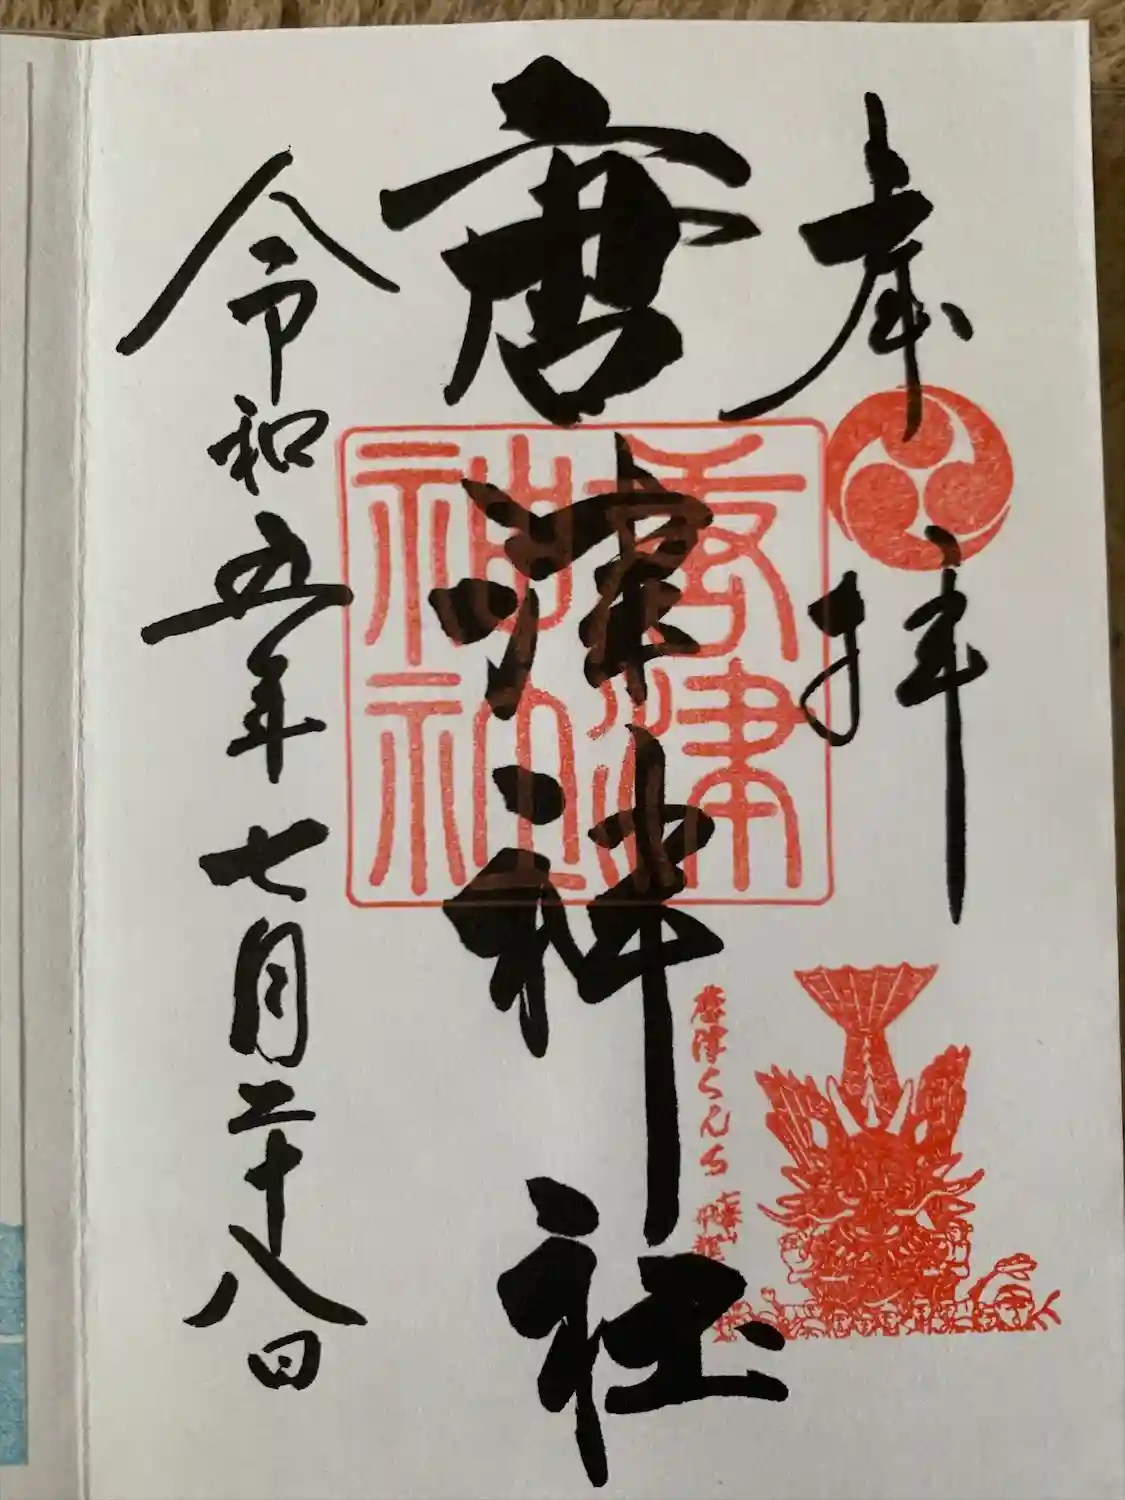 奉拝
唐津神社
唐津神社
唐津くんち
七番山 飛龍
令和五年七月二十八日